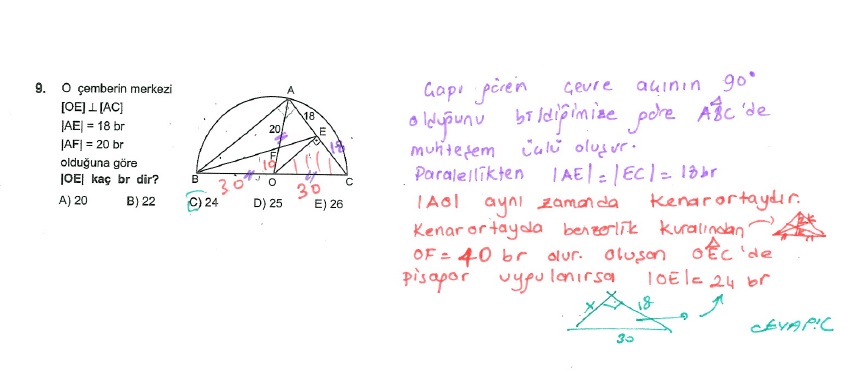 9. O çemberin merkezi
[OE] ⊥ [AC]
|AE| = 18 br
|AF| = 20 br
olduğuna göre
|OE| kaç br dir?
A) 20 B) 22 C) 24 D) 25 E) 26
A
18
20
E
18
F
10
B
O
C
30
30
Çapı gören çevre açının 90°
olduğunu bildiğimize göre ABC'de
muhteşem üçlü oluşur.
Paralellikten |AE| = |EC| = 18br
|AO| aynı zamanda kenarortaydır.
Kenarortayda benzerlik kuralından
OF = 40 br olur. Oluşan OEC'de
pisagor uygulanırsa |OE| = 24 br
x
18
30
CEVAP:C